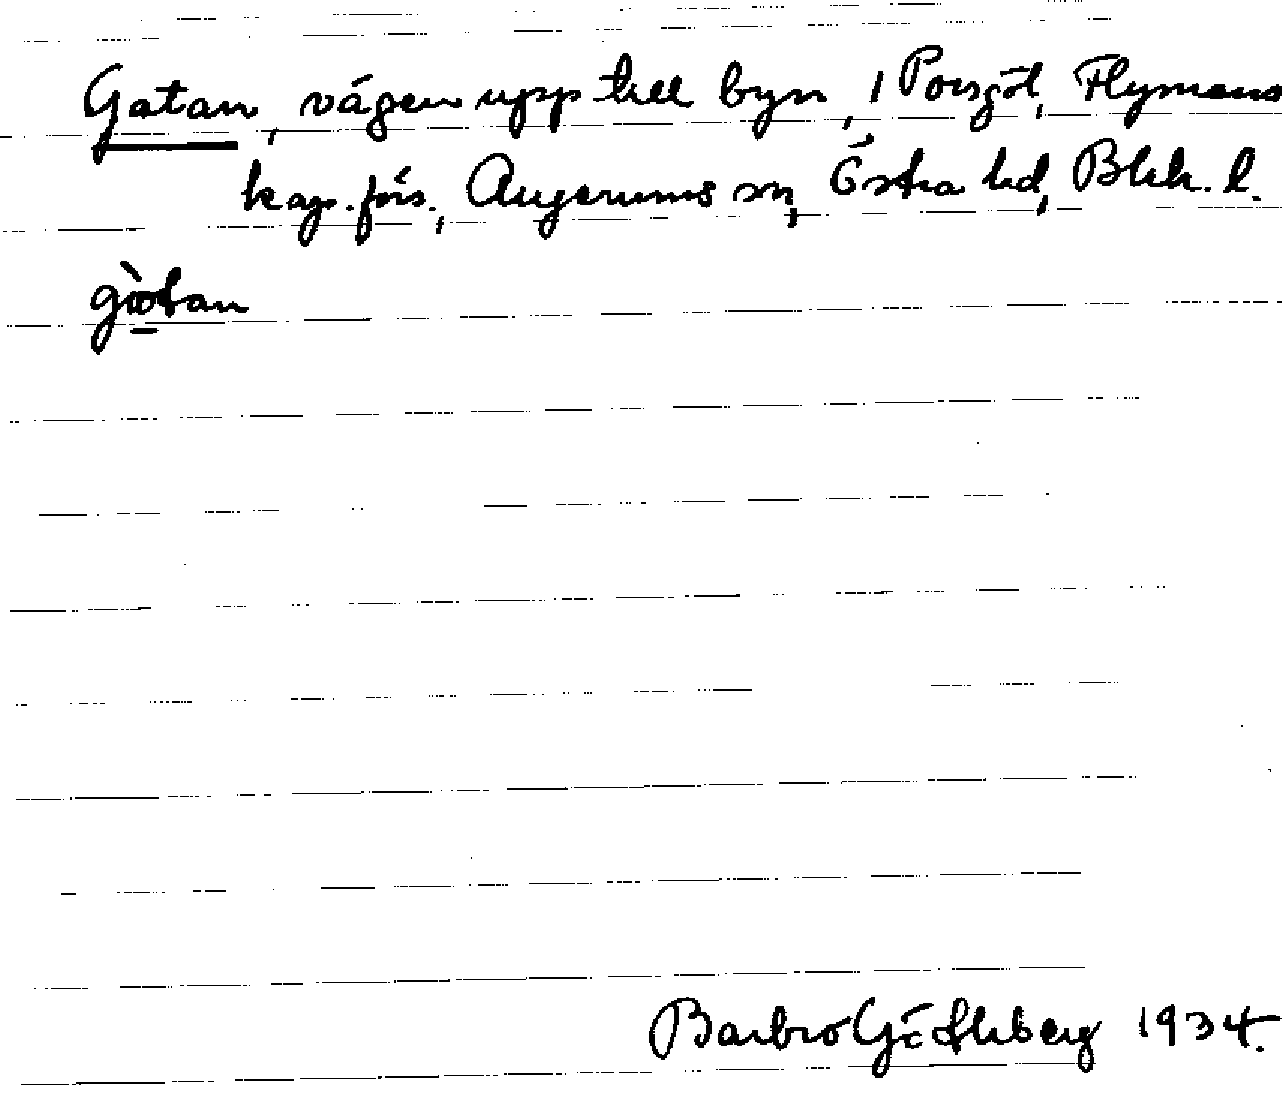 Gatan, vägen upp till byn, i Porsgöl, Flymens
kap.förs., Augerums sn, Östra hd, Blek. l.
gàtan
Barbro Göthberg 1934.